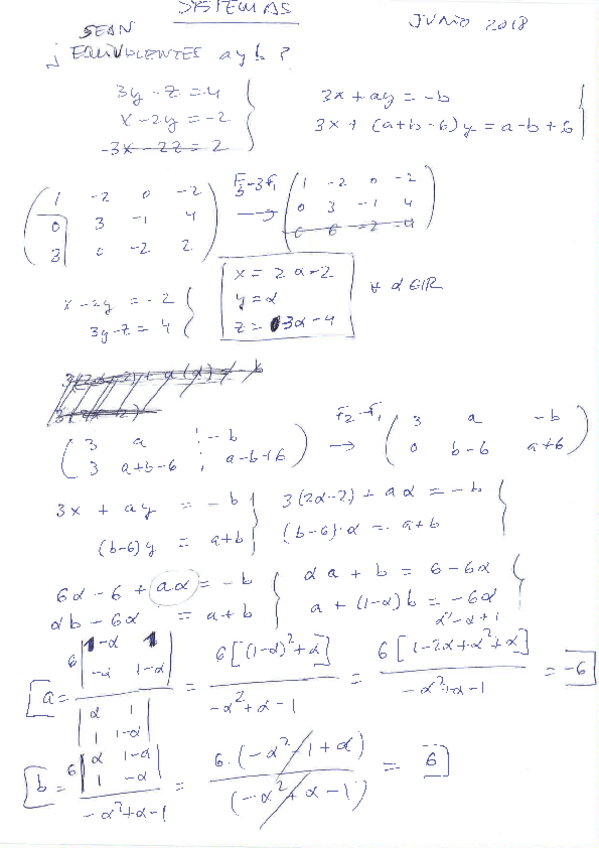 SISTEMAS
JUNIO 2018
SEAN
¿ EQUIVALENTES a y b ?
3y - z = 4
x - 2y = -2
-3x - 2z = 2
3x + ay = -b
3x + (a+b-6)y = a-b+6
1 -2 0 -2
0 3 -1 4
3 0 -2 2
F3-3F1
→
1 -2 0 -2
0 3 -1 4
0 6 -2 4
x - 2y = -2
3y - z = 4
x = 2α-2
y = α
z = 3α-4
∀ α ∈ IR
3 a : -b
3 a+b-6 : a-b+6
F2-F1
→
3 a -b
0 b-6 a+6
3x + ay = -b
(b-6)y = a+b
3(2α-2) + aα = -b
(b-6)·α = a+b
6α - 6 + aα = -b
αb - 6α = a+b
αa + b = 6-6α
a + (1-α)b = -6α
α²-α+1
a = 6 | 1-α 1 | -α 1-α | / | α 1 | 1 1-α | = 6[(1-α)²+α] / -α²+α-1 = 6[1-2α+α²+α] / -α²+α-1 = -6
b = 6 | α 1-α | 1 -α | / -α²+α-1 = 6·(-α²-1+α) / (-α²+α-1) = 6